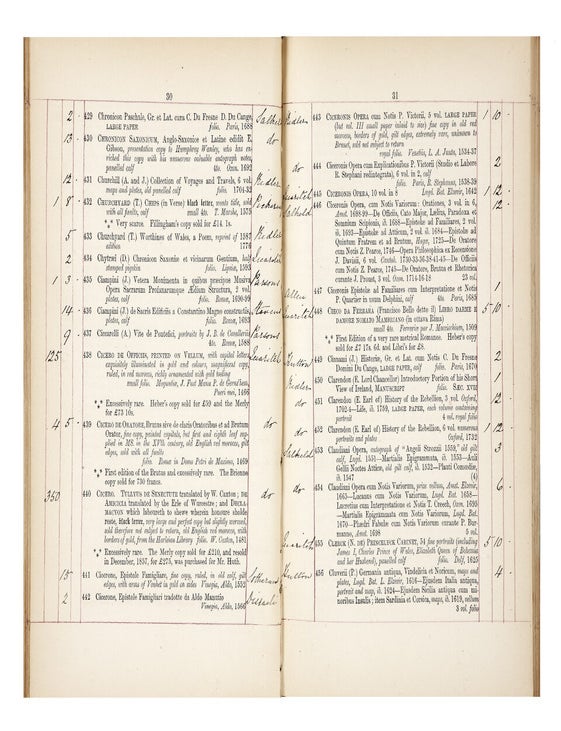 30
2 - 429 Chronicon Paschale, Gr. et Lat. cura C. Du Fresne D. Du Cange,
LARGE PAPER folio. Paris, 1688
13 - 430 CHRONICON SAXONICUM, Anglo-Saxonice et Latine edidit E.
Gibson, presentation copy to Humphrey Wanley, who has en-
riched this copy with his numerous valuable autograph notes,
panelled calf 4to. Oxon. 1692 do
12 - 431 Churchill (A. and J.) Collection of Voyages and Travels, 6 vol.
maps and plates, old panelled calf folio. 1704-32
1 8 - 432 CHURCHYARD (T.) CHIPS (in Verse) black letter, wants title, sold
with all faults, calf small 4to. T. Marshe, 1575
*** Very scarce. Fillingham's copy sold for £14. 1s.
5 433 Churchyard (T.) Worthines of Wales, a Poem, reprint of 1587
edition 1776
2 434 Chytræi (D.) Chronicon Saxoniæ et vicinarum Gentium, half
stamped pigskin folio. Lipsiæ, 1593
1 3 - 435 Ciampini (J.) Vetera Monimenta in quibus præcipue Musiva
Opera Sacrarum Profanarumque Ædium Structura, 2 vol.
plates, calf folio. Romæ, 1690-99 Parsons
14 - 436 Ciampini (J.) de Sacris Ædificiis a Constantino Magno constructis,
plates, calf folio. Romæ, 1693
9 - 437 Ciccarelli (A.) Vite de Pontefici, portraits by J. B. de Cavalleriis
4to. Roma, 1588 Parsons
125 438 CICERO DE OFFICIIS, PRINTED ON VELLUM, with capital letters
exquisitely illuminated in gold and colours, magnificent copy,
ruled, in red morocco, richly ornamented with gold tooling
small folio. Moguntiæ, J. Fust Manu P. de Gernsheim,
Pueri mei, 1466 Quaritch
*** Excessively rare. Heber's copy sold for £50 and the Merly
for £73 10s.
4 5 - 439 CICERO DE ORATORE, BRUTUS sive de claris Oratoribus et ad Brutum
Orator, fine copy, painted capitals, but first and eighth leaf sup-
plied in MS. in the XVth. century, old English red morocco, gilt
edges, sold with all faults
folio. Romæ in Domo Petri de Maximo, 1469 do
*** First edition of the Brutus and excessively rare. The Brienne
copy sold for 730 francs.
350 440 CICERO. TULLIUS DE SENECTUTE translated by W. Caxton; DE
AMICICIA translated by the Erle of Worcestre; and DECLA-
MACYON which laboureth to shewe wherein honoure sholde
reste, black letter, very large and perfect copy but slightly wormed,
sold therefore not subject to return, old English red morocco, with
borders of gold, from the Harleian Library folio. W. Caxton, 1481 do
*** Excessively rare. The Merly copy sold for £210, and resold
in December, 1857, for £275, was purchased for Mr. Huth.
15 - 441 Cicerone, Epistole Famigliare, fine copy, ruled, in old calf, gilt
edges, with arms of Vischet in gold on sides Vinegia, Aldo, 1552
2 442 Cicerone, Epistole Famigliari tradotte da Aldo Manutio
Venegia, Aldo, 1566
31
443 CICERONIS OPERA cum Notis P. Victorii, 5 vol. LARGE PAPER
(but vol. III small paper inlaid to size) fine copy in old red
morocco, borders of gold, gilt edges, extremely rare, unknown to
Brunet, sold not subject to return
royal folio. Venetiis, L. A. Junta, 1534-37 1 10 -
do 444 Ciceronis Opera cum Explicationibus P. Victorii (Studio et Labore
R. Stephani redintegrata), 6 vol. in 2, calf
folio. Paris, R. Stephanus, 1538-39 2
Quaritch 445 CICERONIS OPERA, 10 vol. in 8 Lugd. Bat. Elzevir, 1642 1 12 -
446 Ciceronis Opera, cum Notis Variorum: Orationes, 3 vol. in 6,
Amst. 1698-99—De Officiis, Cato Major, Lælius, Paradoxa et
Somnium Scipionis, ib. 1688—Epistolæ ad Familiares, 2 vol.
ib. 1693—Epistolæ ad Atticum, 2 vol. ib. 1684—Epistolæ ad
Quintum Fratrem et ad Brutum, Hagæ, 1725—De Oratore
cum Notis Z. Pearce, 1746—Opera Philosophica ex Recensione
J. Davisii, 6 vol. Cantab. 1730-33-36-38-41-45—De Officiis
cum Notis Z. Pearce, 1745—De Oratore, Brutus et Rhetorica
curante J. Proust, 3 vol. Oxon. 1714-16-18 25 vol. 12 -
447 Ciceronis Epistolæ ad Familiares cum Interpretatione et Notis
P. Quartier in usum Delphini, calf 4to. Paris, 1685 1
Quaritch 448 CIECO DA FERRARA (Francisco Bello detto il) LIBRO DARME E
DAMORE NOMATO MAMBRIANO (in ottava Rima)
small 4to. Ferrariæ per J. Maciochium, 1509 5 10 -
*** First Edition of a very rare metrical Romance. Heber's copy
sold for £7 17s. 6d. and Libri's for £8.
449 Cinnami (J.) Historiæ, Gr. et Lat. cum Notis C. Du Fresne
Domini Du Cange, LARGE PAPER, calf folio. Paris, 1670 2
450 Clarendon (E. Lord Chancellor) Introductory Portion of his Short
View of Ireland, MANUSCRIPT folio. SÆC. XVII 1
do 451 Clarendon (E. Earl of) History of the Rebellion, 3 vol. Oxford,
1702-4—Life, ib. 1759, LARGE PAPER, each volume containing
portrait 4 vol. royal folio 12
do 452 Clarendon (E. Earl of) History of the Rebellion, 6 vol. numerous
portraits and plates Oxford, 1732 1 12 -
453 Claudiani Opera, autograph of "Angeli Strozzii 1559," old gilt
calf, Lugd. 1551—Martialis Epigrammata, ib. 1553—Auli
Gellii Noctes Atticæ, old gilt calf, ib. 1532—Plauti Comœdiæ,
ib. 1547 (4) 3
do 454 Claudiani Opera cum Notis Variorum, prize vellum, Amst. Elzevir,
1665—Lucanus cum Notis Variorum, Lugd. Bat. 1658—
Lucretius cum Interpretatione et Notis T. Creech, Oxon. 1695
—Martialis Epigrammata cum Notis Variorum, Lugd. Bat.
1670—Phædri Fabulæ cum Notis Variorum curante P. Bur-
manno, Amst. 1698 5 vol. 6 -
Quaritch 455 CLERCK (N. DE) PRINCELYCK CABINET, 54 fine portraits (including
James I, Charles Prince of Wales, Elizabeth Queen of Bohemia
and her Husband), panelled calf folio. Delf, 1625 5 10 -
Hutton 456 Cluverii (P.) Germania antiqua, Vindelicia et Noricum, maps and
plates, Lugd. Bat. L. Elzevir, 1616—Ejusdem Italia antiqua,
portrait and map, ib. 1624—Ejusdem Sicilia antiqua cum mi-
noribus Insulis; item Sardinia et Corsica, maps, ib. 1619, vellum
3 vol. folio 4 -